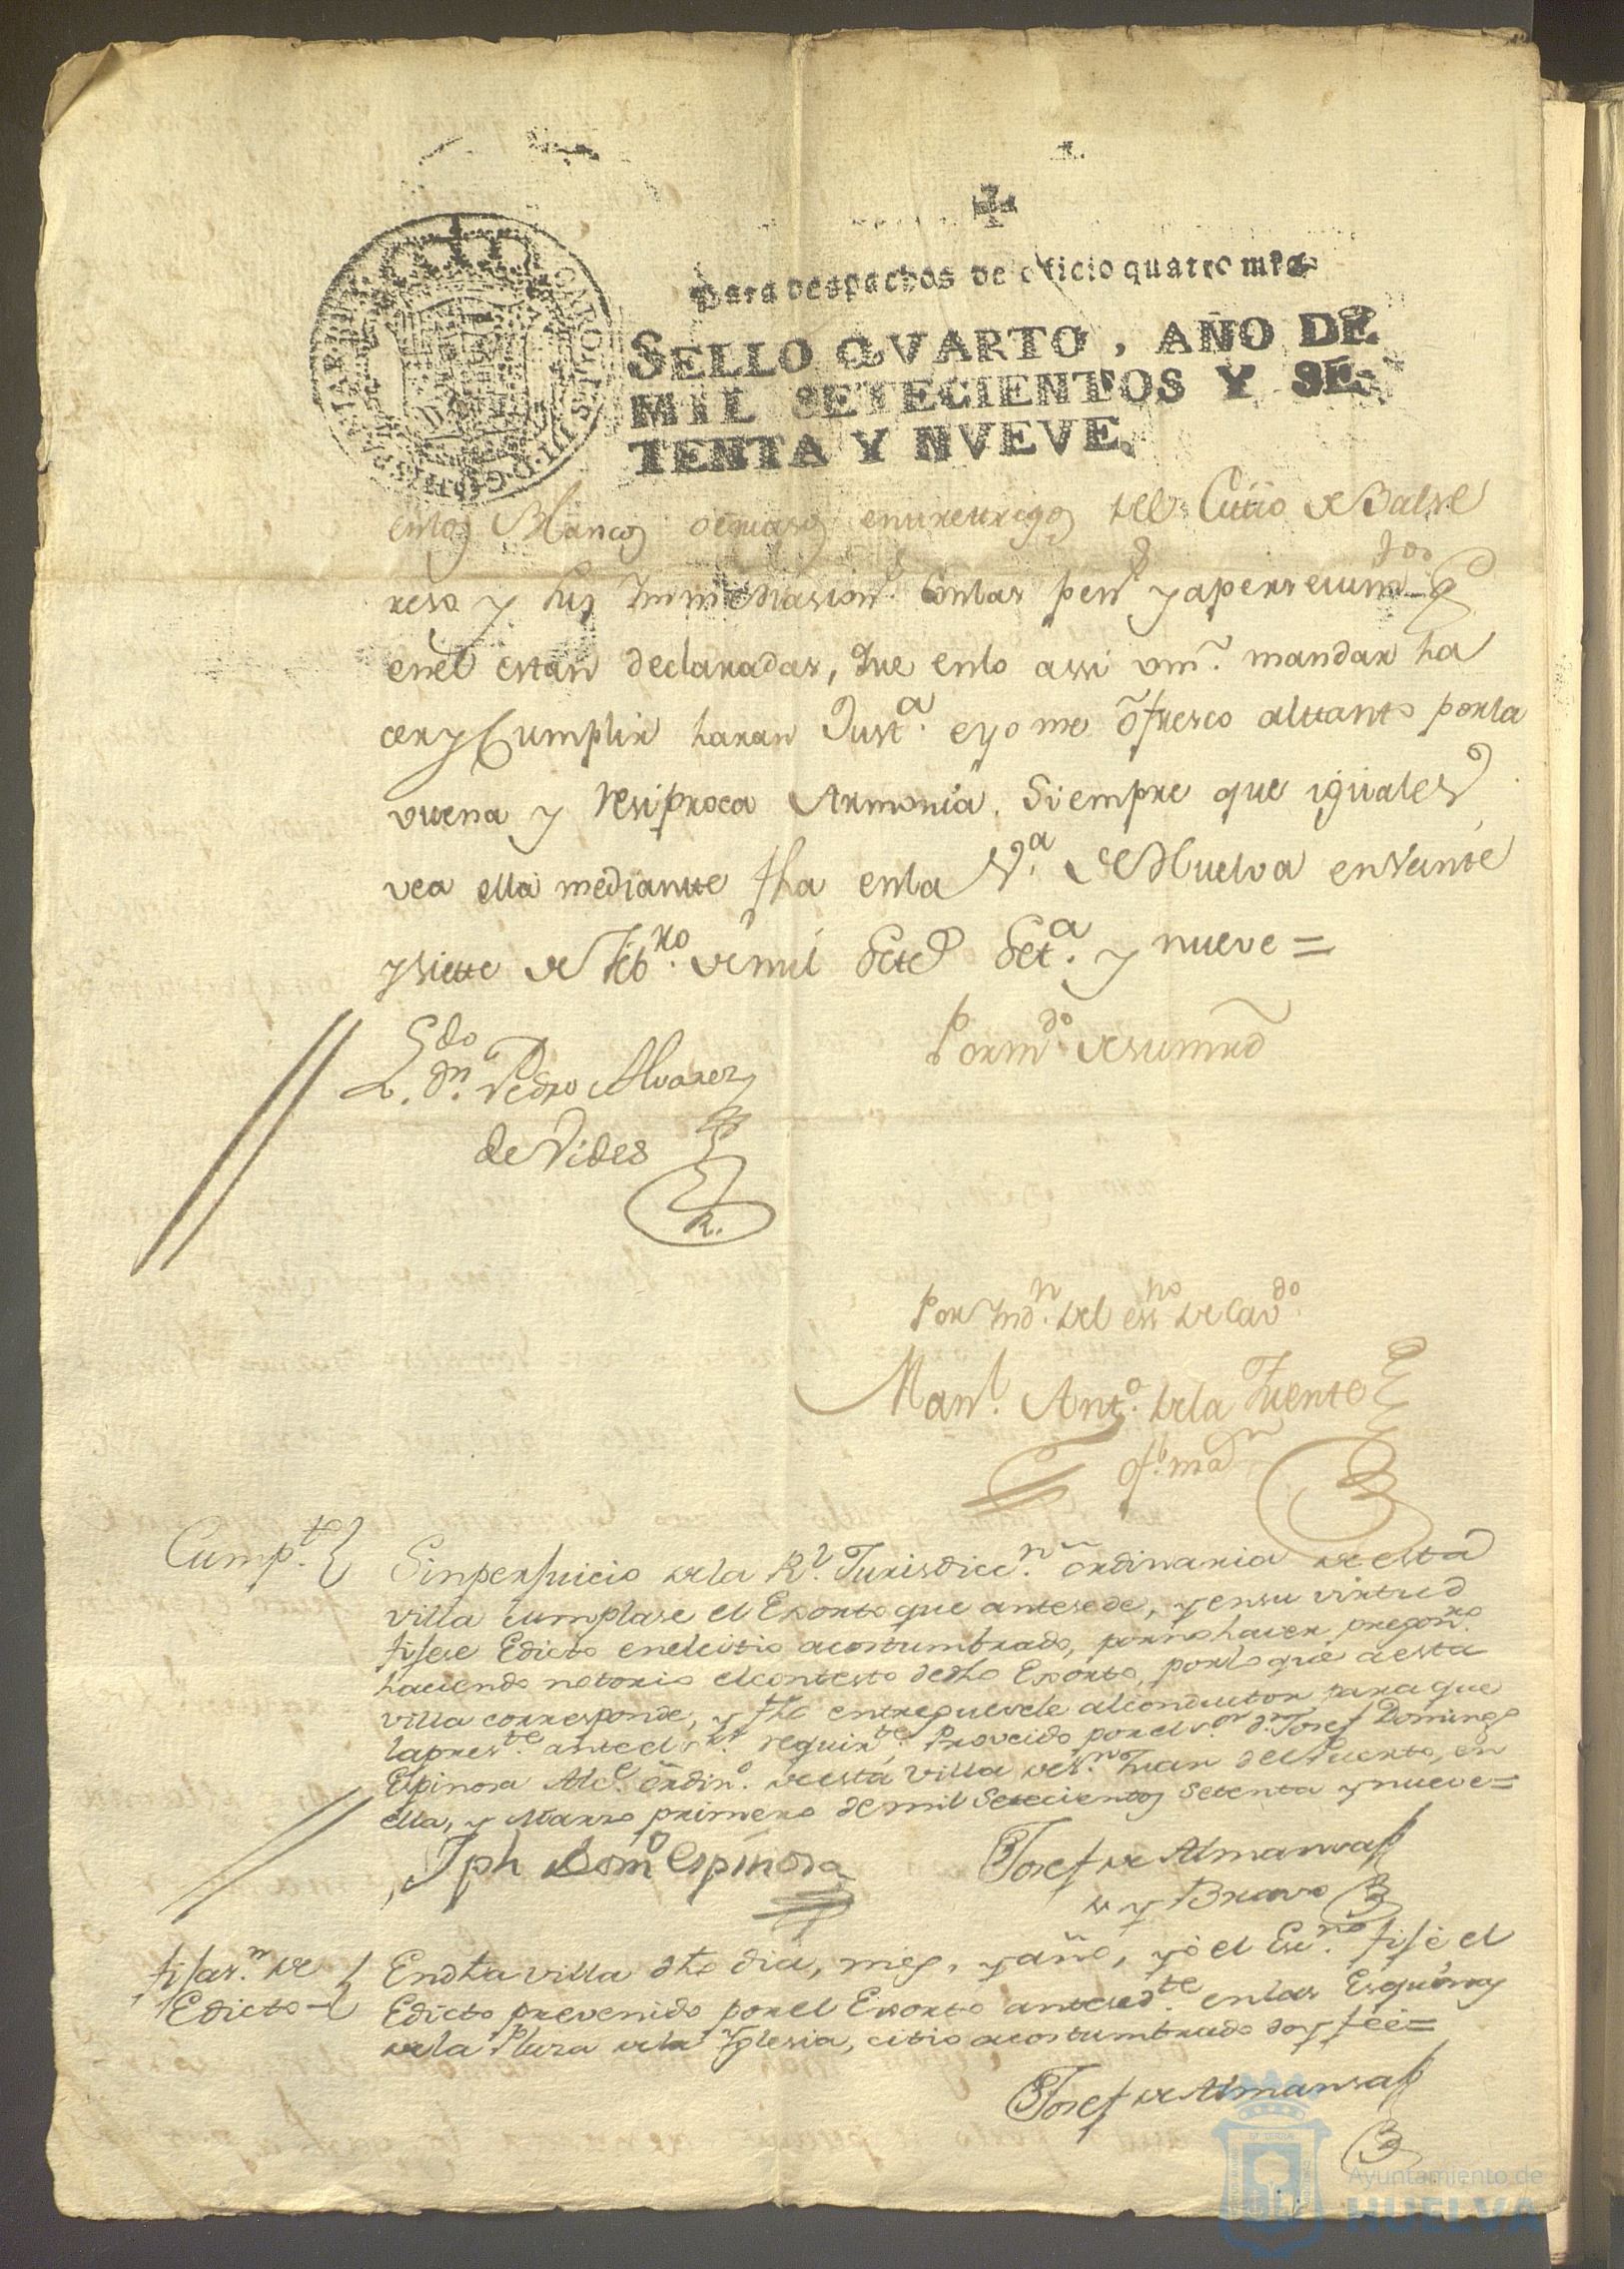 Para despachos de oficio quatro mrs
SELLO QVARTO, AÑO DE
MIL SETECIENTOS Y SE-
TENTA Y NVEVE.
enlos Blancos del Citio de Balde
reso y sus Immediasion.s conlas pen.s y apersevim.tos q
enel estan declaradas, que enlo assi vm.s mandar ha
cer y Cumplir haran Just.a e yo me ofresco altanto por la
vuena y Resiproca Armonia, Siempre que iguales
vea ella mediantte fha enla V.a de Huelva en Veinte
y siette de Feb.ro de mil Setes Set.a y nueve =
L.do dn. Pedro Alvarez
de Vides
R.
Por m.do de su mrd
Por Ind.n del ess.no de Cav.do
Man.l Ant.o dela Fuente
ofl. ma.r
Cump.to
Sin perjuicio dela R.l Jurisdicc.n ordinaria de esta
villa cumplase el Exorto que antesede, y en su virtud
fijese Edicto enel citio acostumbrado, por no haver pregon.ro
haciendo notorio el contesto de dho Exorto, por lo que a esta
villa corresponde, y fho entreguesele al conductor para que
lo pres.te ante el s.r requir.te; Proveido por el s.or d.n Josef Domingo
Espinosa Alc.e ordin.o de esta villa de S.n Juan del Puerto, en
ella, y Marzo primero de mil Setecientos Setenta y nueve =
Jph Dom.o Espinosa
Josef de Almansa
y Bravo
fijas.n de
Edicto
En dha villa dho dia, mes, y año, yo el Esc.no fijé el
Edicto prevenido por el Exorto antesed.te en las Esquinas
dela Plaza dela Yglesia, citio acostumbrado doy fee =
Josef de Almansa
Ayuntamiento de
HUELVA